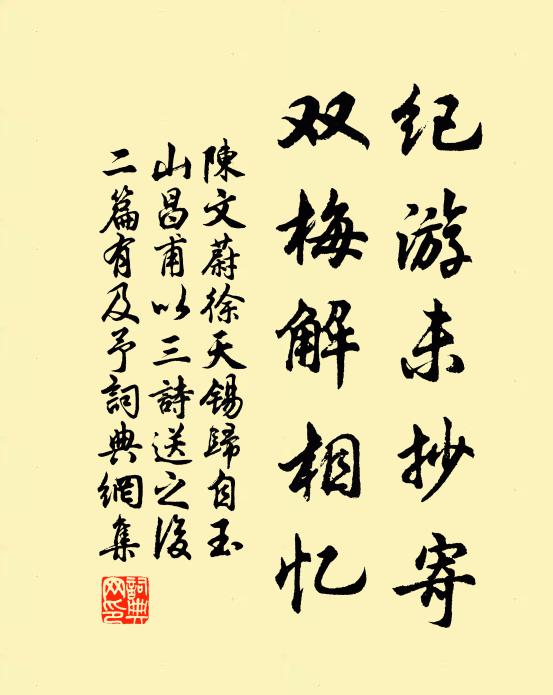 纪游未抄寄
双梅解相忆
陳文蔚徐天锡歸自玉
山昌甫以三詩送之後
二篇有及予詞典網集
詞典網印